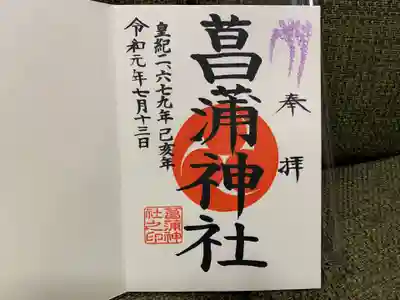 奉拝
菖蒲神社
皇紀二、六七九年己亥年
令和元年七月十三日
菖蒲神
社之印